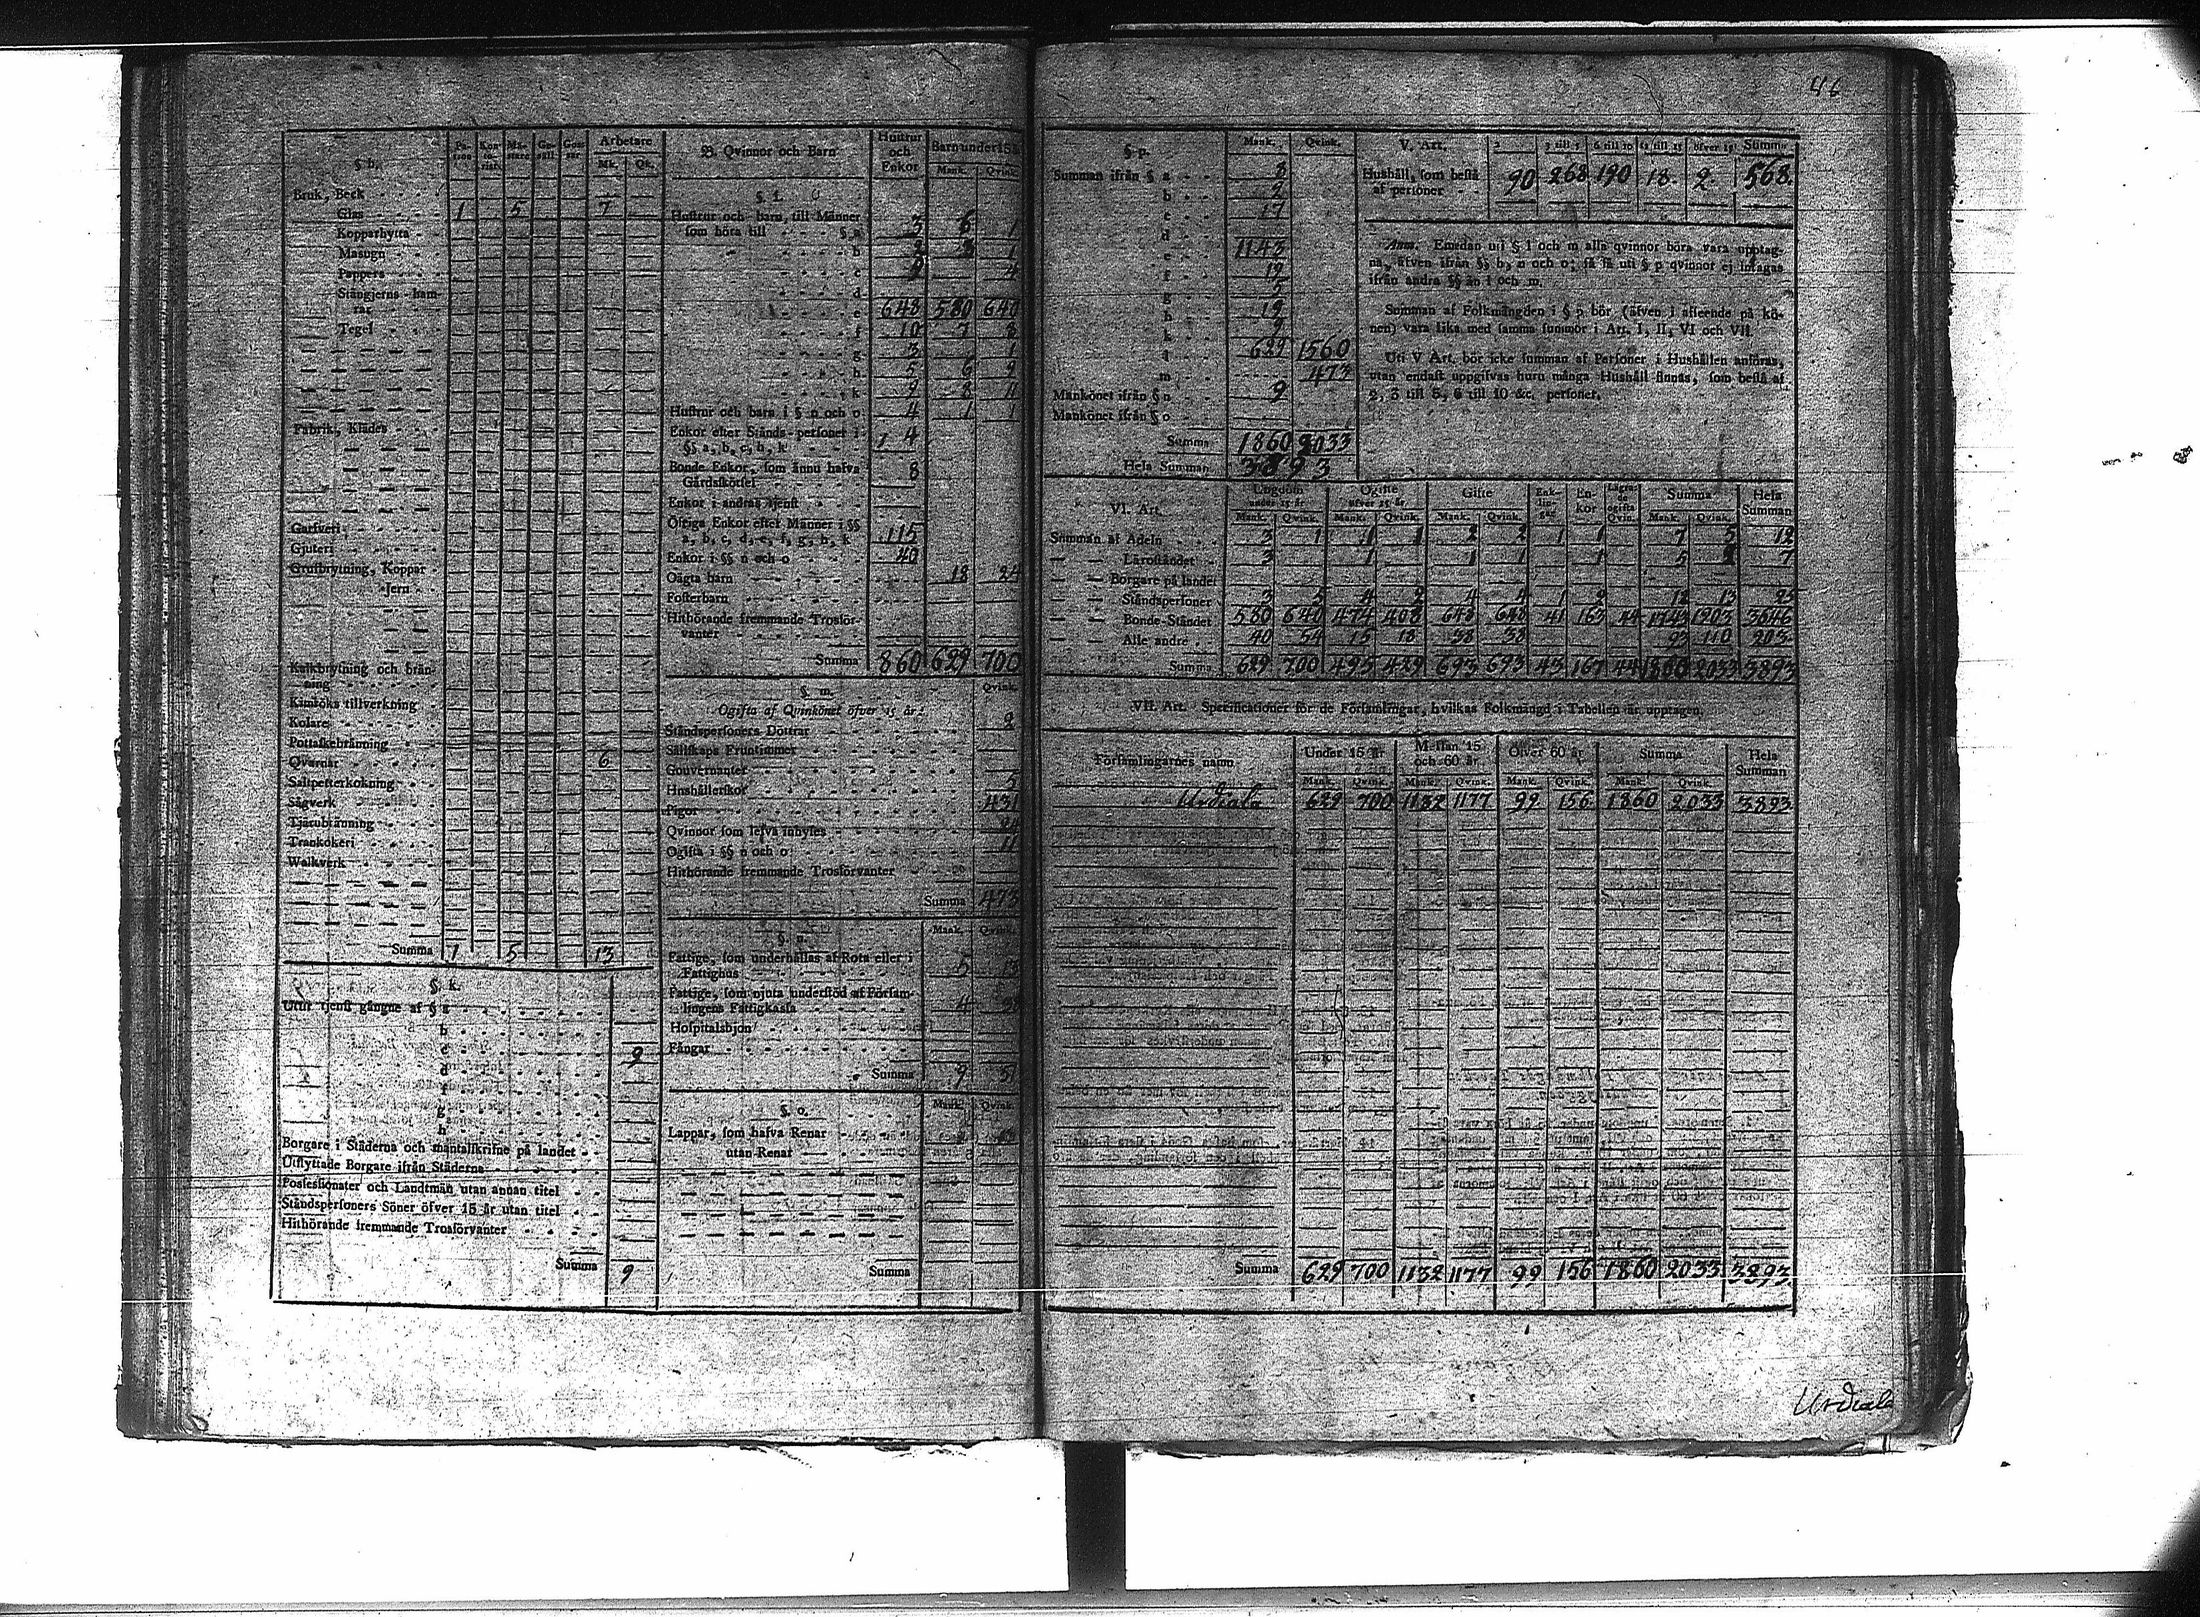 46
§ h. Pa-tron Kon-to-rist. Mä-stare Ge-säll. Gos-sar Arbetare Mk. Qk.
Bruk, Beck
Glas 1 5 7
Kopparhytta
Masugn
Pappers
Stångjerns-ham-
rar
Tegel
Fabrik, Klädes
Garfveri
Gjuteri
Grufbrytning, Koppar
Jern
Kalkbrytning och brän-
ning
Kimröks tillverkning
Kolare
Pottaskebränning
Qvarnar 6
Saltpetterkokning
Sågverk
Tjärubränning
Trankokeri
Walkverk
Summa 1 5 13
§. k.
Utur tjenst gångne af § a
b
c 9
d
f
g
h
Borgare i Städerna och mantalskrifne på landet
Utflyttade Borgare ifrån Städerna
Possessionater och Landtmän utan annan titel
Ståndspersoners Söner öfver 15 år utan titel
Hithörande fremmande Trosförvanter
Summa 9
B. Qvinnor och Barn Hustrur och Enkor Barn under 15 år Mank. Qvink.
§. l.
Hustrur och barn, till Männer
som höra till § a 3 6 1
b 2 3 1
c 9 4
d
e 648 580 640
f 10 7 8
g 3 1
h 5 6 9
k 9 8 11
Hustrur och barn i § n och o 4 1 1
Enkor efter Stånds-personer i
§§ a, b, c, h, k 4
Bonde Enkor, som ännu hafva 8
Gårdsskötsel
Enkor i andras tjenst
Öfriga Enkor efter Männer i §§
a, b, c, d, e, f, g, h, k 115
Enkor i §§ n och o 40
Oägta barn 18 24
Fosterbarn
Hithörande fremmande Trosför-
vanter
Summa 860 629 700
§. m. Qvink.
Ogifta af Qvinkönet öfver 15 år:
Ståndspersoners Döttrar 2
Sällskaps Fruntimmer
Gouvernanter
Hushållerskor 5
Pigor 431
Qvinnor som lefva inhyses 24
Ogifta i §§ n och o 11
Hithörande fremmande Trosförvanter
Summa 473
§. n. Mank. Qvink.
Fattige, som underhållas af Rota eller i
Fattighus 5 13
Fattige, som njuta understöd af Försam-
lingens Fattigkassa 4 38
Hospitalshjon
Fångar
Summa 9 51
§. o. Mank. Qvink.
Lappar, som hafva Renar
utan Renar
Summa
§ p. Mank. Qvink.
Summan ifrån § a 8
b 2
c 17
d
e 1143
f 19
g 5
h 19
k 9
l 629 1560
m 473
Mankönet ifrån § n 9
Mankönet ifrån § o
Summa 1860 2033
Hela Summan 3893
V. Art. 2 3 till 5 6 till 10 11 till 15 öfver 15 Summa
Hushåll, som bestå
af personer 90 268 190 18. 2. 568.
Anm. Emedan uti § l och m alla qvinnor böra vara upptag-
na, äfven ifrån §§ b, n och o; så få uti § p qvinnor ej intagas
ifrån andra §§ än l och m.
Summan af Folkmängden i § p bör (äfven i afseende på kö-
nen) vara lika med samma summor i Art. I, II, VI och VII.
Uti V Art. bör icke summan af Personer i Hushållen anföras,
utan endast uppgifvas huru många Hushåll finnas, som bestå af
2, 3 till 5, 6 till 10 &c. personer.
VI. Art. Ungdom under 15 år Ogifte öfver 15 år Gifte Enk-lin-gar En-kor Lägra-de ogifta Qvin. Summa Hela Summan
Mank. Qvink. Mank. Qvink. Mank. Qvink. Mank. Qvink.
Summan af Adeln 3 1 1 1 2 2 1 1 7 5 12
Läroståndet 3 1 1 1 1 5 2 7
Borgare på landet
Ståndspersoner 3 5 4 2 4 4 1 2 12 13 25
Bonde-Ståndet 580 640 474 408 648 648 41 163 44 1743 1903 3646
Alle andre 40 54 15 18 38 38 93 110 203
Summa 629 700 495 429 693 693 43 167 44 1860 2033 3893
VII. Art. Specificationer för de Församlingar, hvilkas Folkmängd i Tabellen är upptagen.
Församlingarnes namn Under 15 år Mellan 15 och 60 år Öfver 60 år Summa Hela Summan
Mank. Qvink. Mank. Qvink. Mank. Qvink. Mank. Qvink.
Urdiala 629 700 1132 1177 99 156 1860 2033 3893
Summa 629 700 1132 1177 99 156 1860 2033 3893.
Urdiala